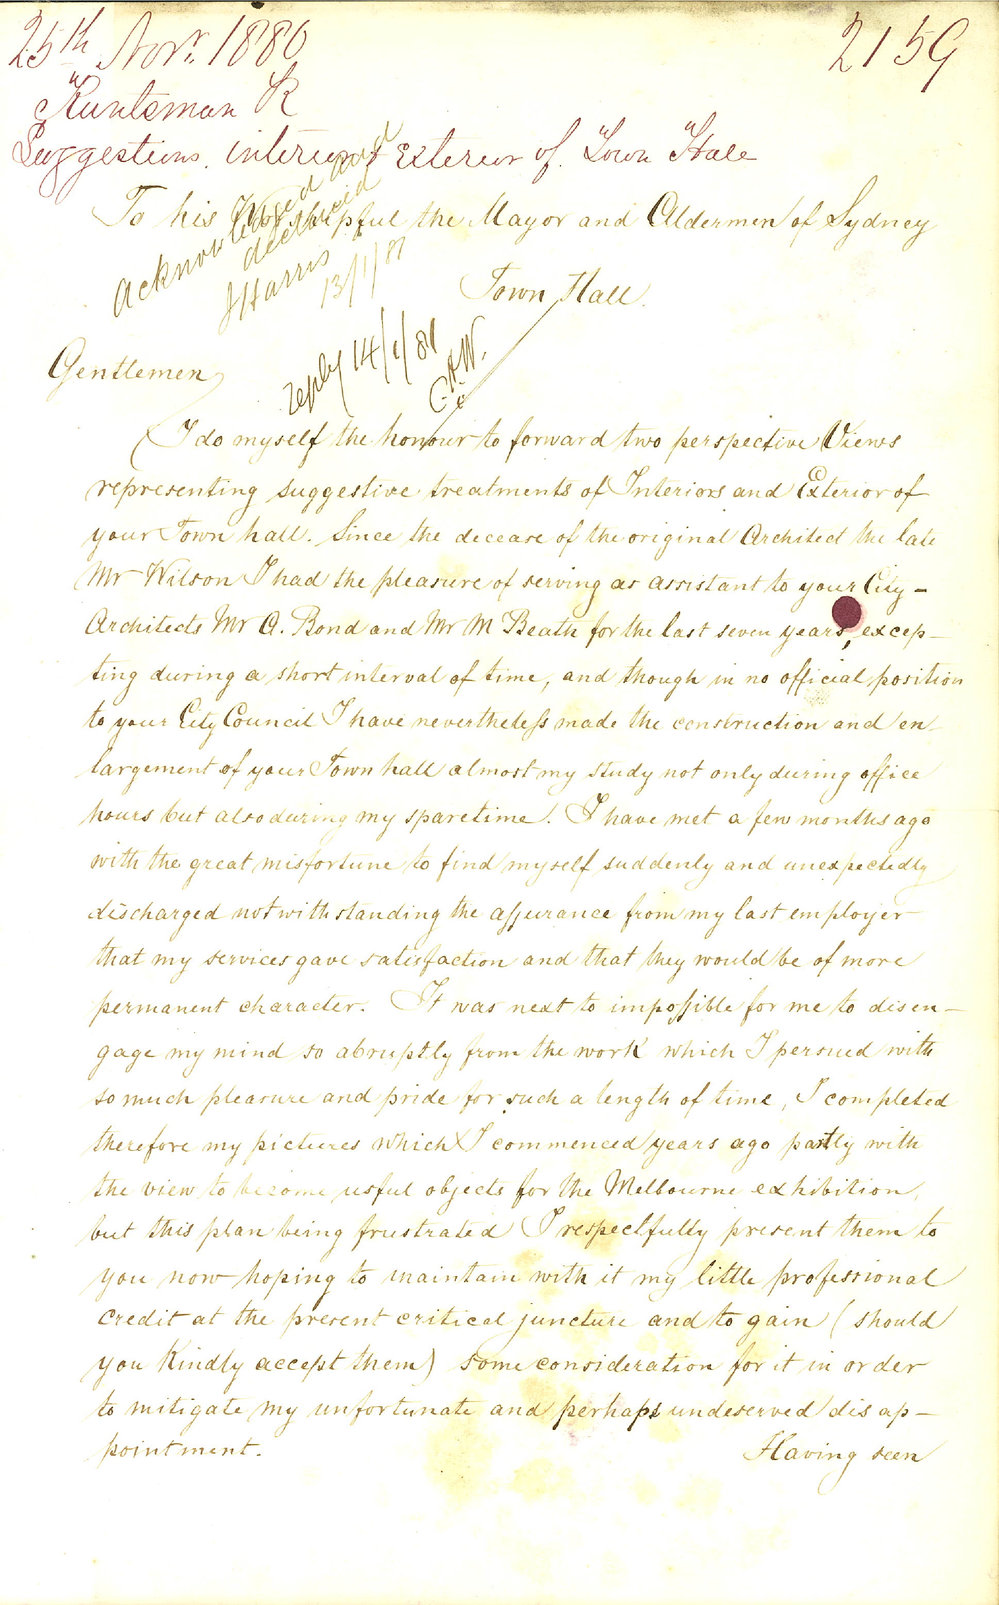 25th Novr. 1880
2159
Kuntsman R
Suggestions. interior & Exterior of Town Hall
To his Worshipful the Mayor and Aldermen of Sydney
Acknowledged and
declined
J Harris
13/1/81
Town Hall.
reply 14/1/81
Gentlemen
I do myself the honour to forward two perspective Views
representing suggestive treatments of Interiors and Exterior of
your Town hall. Since the decease of the original Architect the late
Mr Wilson I had the pleasure of serving as assistant to your City-
Architects Mr A. Bond and Mr M Beath for the last seven years, excep-
ting during a short interval of time, and though in no official position
to your City Council I have nevertheless made the construction and en-
largement of your Town hall almost my study not only during office
hours but also during my sparetime. I have met a few months ago
with the great misfortune to find myself suddenly and unexpectedly
discharged notwithstanding the assurance from my last employer
that my services gave satisfaction and that they would be of more
permanent character. It was next to impossible for me to disen-
gage my mind so abruptly from the work which I persued with
so much pleasure and pride for such a length of time, I completed
therefore my pictures which I commenced years ago partly with
the view to become usful objects for the Melbourne exhibition,
but this plan being frustrated I respectfully present them to
you now hoping to maintain with it my little professional
credit at the present critical juncture and to gain (should
you Kindly accept them) some consideration for it in order
to mitigate my unfortunate and perhaps undeserved disap-
pointment.
Having seen